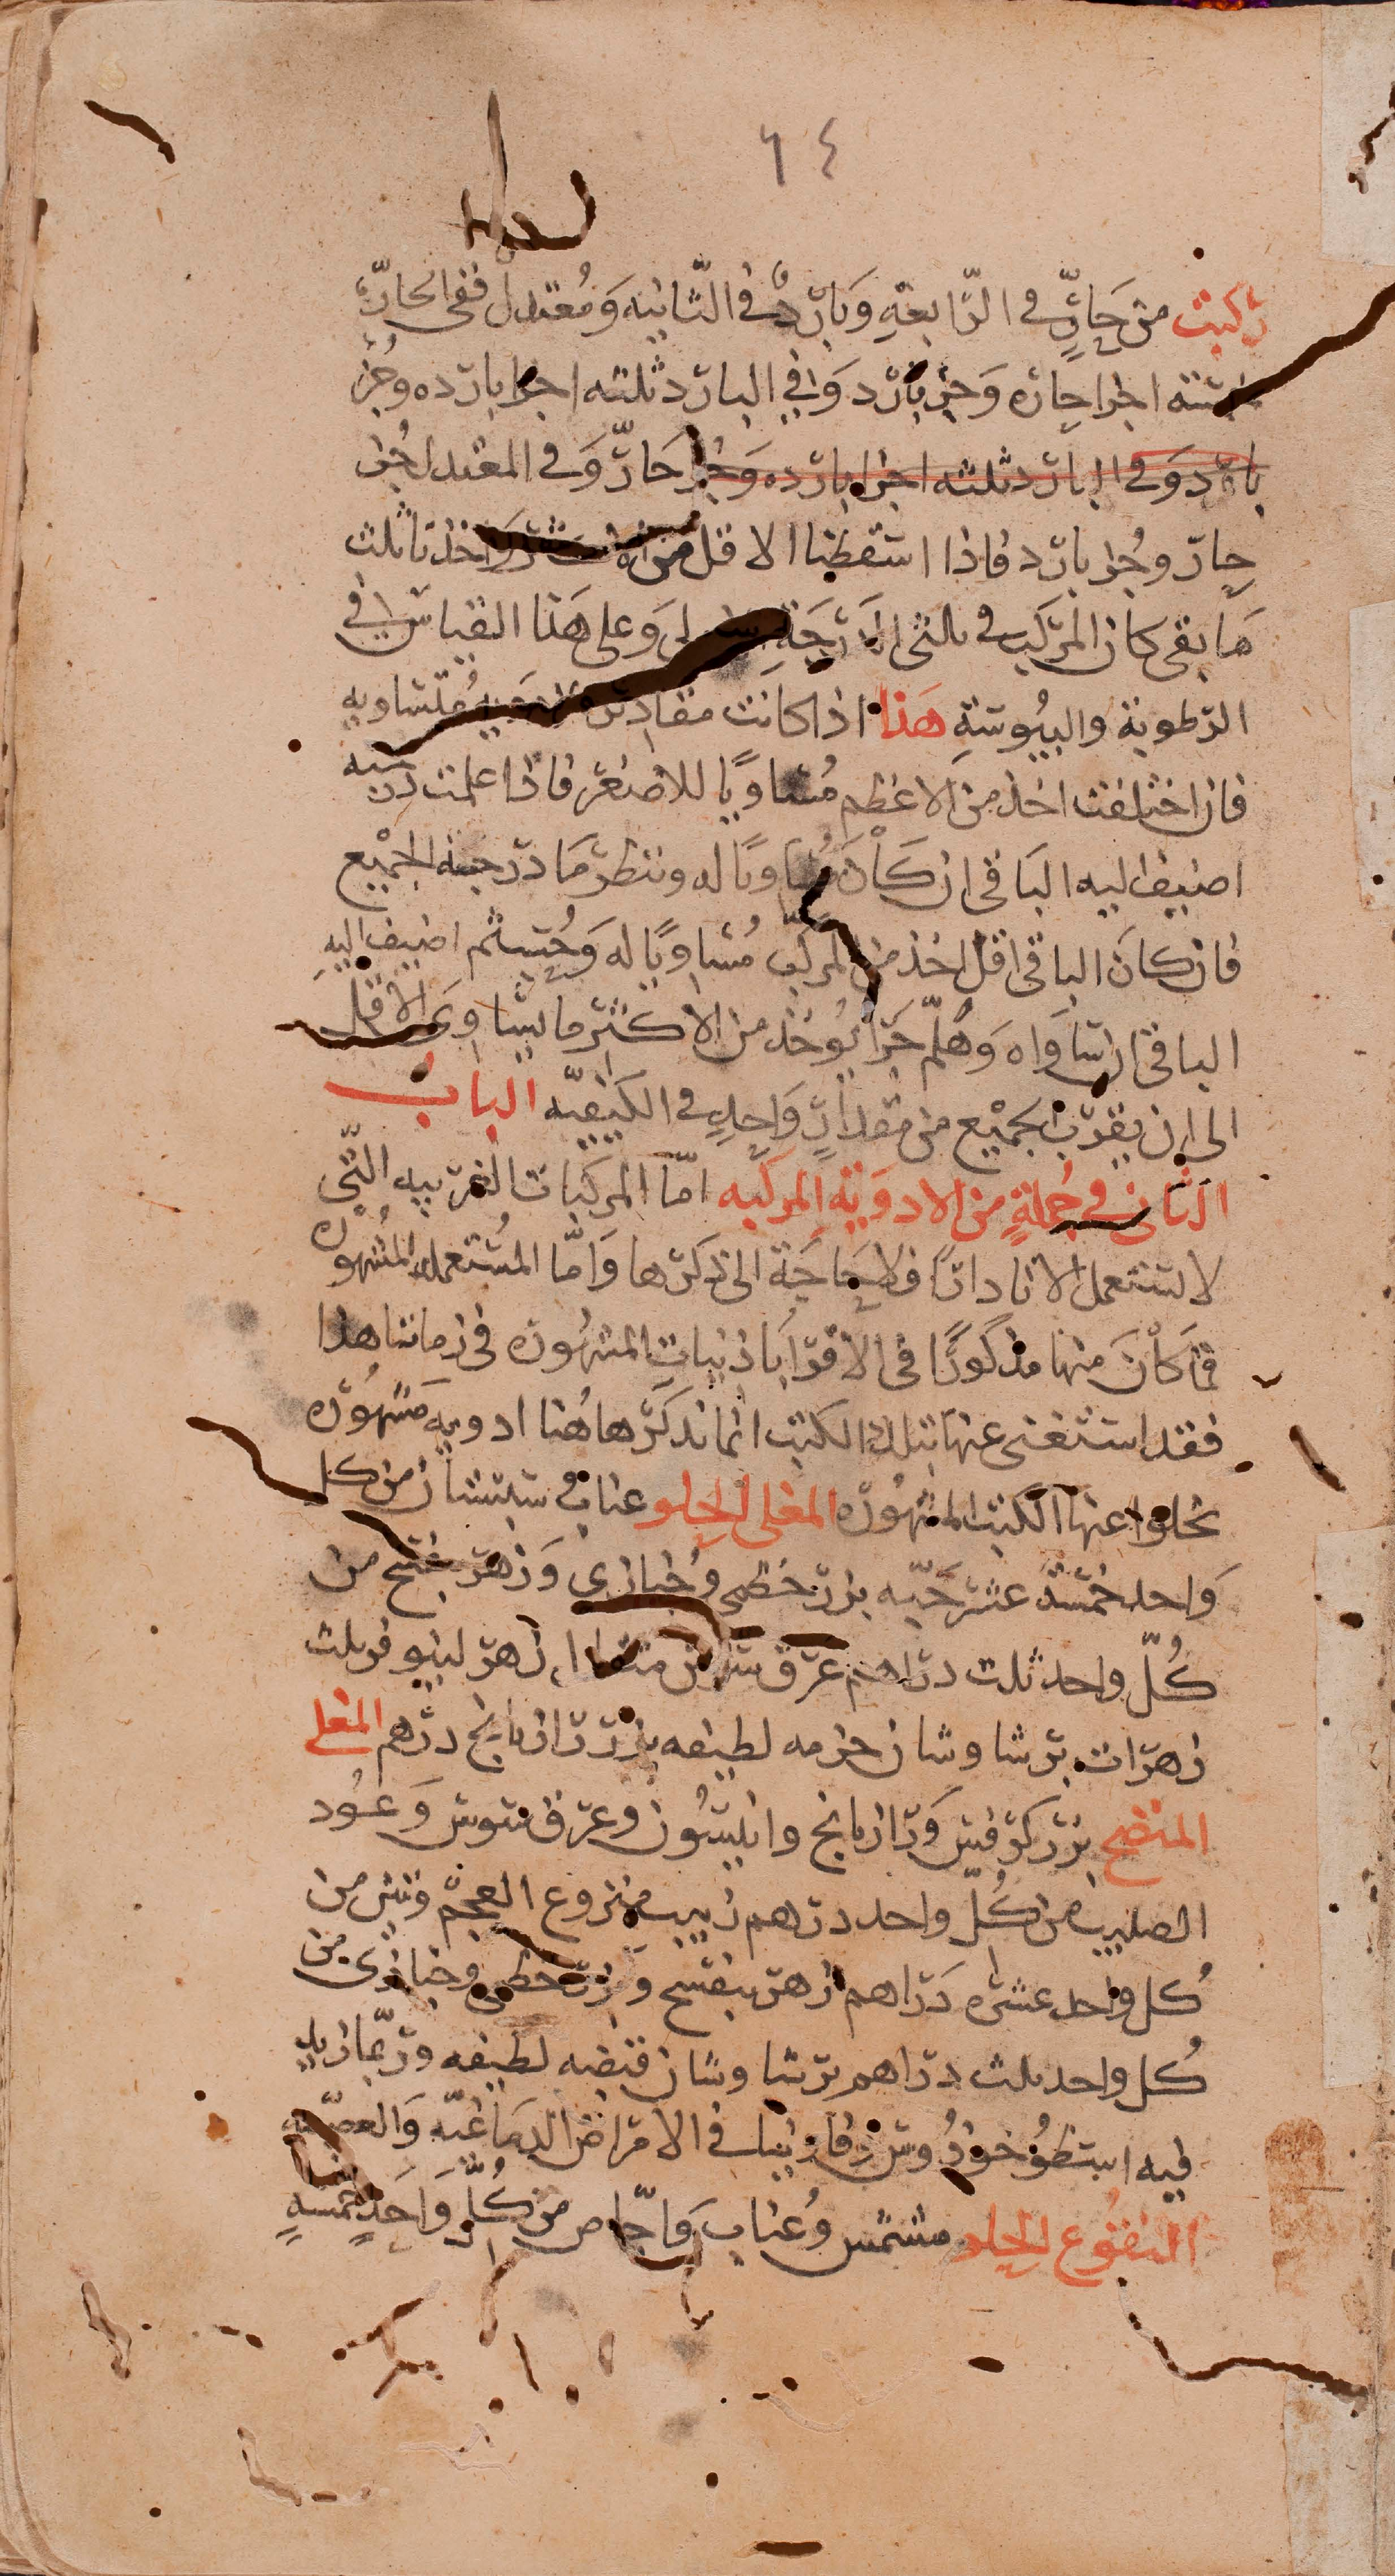 ٦٤
ركبت من حَارٍّ في الرّابعةِ وَبَاردٌ في الثّانيه وَمُعتدل ففي الحارّ
اجزا حاره وَجز بارد وَفي البارد ثلثه اجزا بارده وجُز
بارد وَفي البارد ثلثه اجزا بارده وَجُزا حَارّ وَفي المعتدل جُزا
حارّ وجُزا بارد فاذا اسقطنا الاقل من واخذنا ثلث
مَا بقى كان المركب في ثالثى الدَرَجَةِ وَعلى هَذا القياس في
الرّطوبة واليبُوسَةِ هَذا اذا كانت مقادير مُتساويه
فان اختلفت اخذ من الاعظم مُساويًا للاصغر فاذا علمت درجته
اضيف اليه البَاقي ان كَاْنَ مُسَاويًا له وننظر مَا درجة الجمْيع
فان كانَ الباقى اقل اخذ من المركّب مُسَاويًا له وَحُسِبَ ثم اضيف اليهِ
الباقى ان سَاوَاه وَهلمّ جَرّا يُوخذ من الاكثر ما يسَاوى الاقل
الى ان يقرّب الجمْيع من مقدارٍ وَاحدٍ في الكَيفيّه الباب
الثاني في جُملةٍ من الادوَيةِ المركبه امّا المركبات الغريبه التّي
لا تستعمل الا نادرًا فلا حَاجَة الى ذكرها وَامّا المُستعمله المشهوره
فمَا كَاْنَ منها مذكورًا في الاقرَاباذينات المشهُوره في زماننا هذا
فقد استغنى عنها بتلك الكتب انما نذكر هاهُنا ادويه مَشهُوره
تخلوا عنها الكتب المشهُوره المغلى الحلو عناب وسبستان من كل
وَاحد خمسَة عشر حَبّه بزر خطمى وخُبازى وَزهر بنفسج من
كُلّ واحد ثلث دراهم عرق سوس مثقالا زهر لينوفر ثلث
زهرات برشاوشان حزمه لطيفه بزر رازيانج درهم المغلى
المنضج بزر كرفس وَرازيانج وانيسُون وعرق سوس وَعُود
الصليب من كُلّ واحد درهم زبيب منزوع العجم وتين من
كُل واحد عشره دَرَاهم زهر بنفسج وبزر خطمى وخبازى من
كُل واحد ثلث دراهم برشاوشان قبضه لطيفه وربّما زيد
فيه اسطوُخودُوس وفاونيا في الامراض الدمَاغيّه وَالعصبيّه
النقوُع الحلو مشمش وعُناب وَاجّاص من كُلّ وَاحَدٍ خمسه